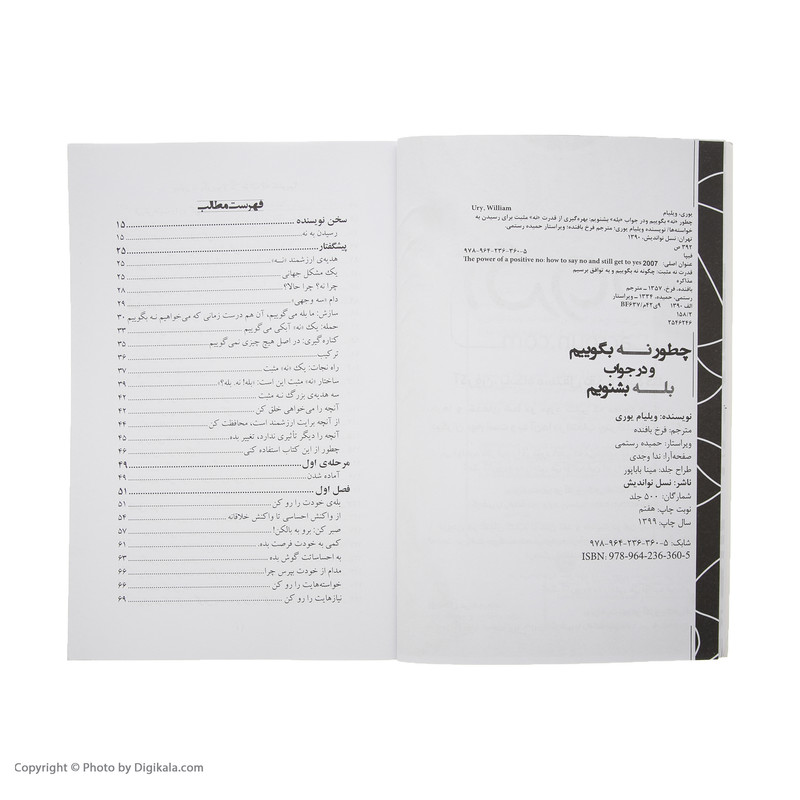 Ury, William
یوری، ویلیام
چطور «نه» بگوییم ودر جواب «بله» بشنویم: بهره‌گیری از قدرت «نه» مثبت برای رسیدن به
خواسته‌ها/ نویسنده ویلیام یوری؛ مترجم فرخ بافنده؛ ویراستار حمیده رستمی.
تهران: نسل نواندیش، ۱۳۹۰.
۳۹۲ ص
۹۷۸-۹۶۴-۲۳۶-۳۶۰-۵
فیپا
عنوان اصلی: The power of a positive no: how to say no and still get to yes 2007
قدرت نه مثبت: چگونه نه بگوییم و به توافق برسیم
مذاکره
بافنده، فرخ، ۱۳۵۷ ـ مترجم
رستمی، حمیده، ۱۳۳۴ ـ ویراستار
الف ۱۳۹۰ ۹ی۴۲م/BF۶۳۷
۱۵۸/۲
۲۵۴۶۲۴۶
چطور نــه بگوییم
و در جواب
بلــه بشنویم
نویسنده: ویلیام یوری
مترجم: فرخ بافنده
ویراستار: حمیده رستمی
صفحه‌آرا: ندا وجدی
طراح جلد: مینا باباپور
ناشر: نسل نواندیش
شمارگان: ۵۰۰ جلد
نوبت چاپ: هفتم
سال چاپ: ۱۳۹۹
شابک: ۵-۳۶۰-۲۳۶-۹۶۴-۹۷۸
ISBN: 978-964-236-360-5
فهرست مطالب
سخن نویسنده ۱۵
رسیدن به نه ۱۵
پیشگفتار ۲۵
هدیه‌ی ارزشمند «نــه» ۲۵
یک مشکل جهانی ۲۵
چرا نه؟ چرا حالا؟ ۲۸
دام «سه وجهی» ۲۹
سازش: ما بله می‌گوییم، آن هم درست زمانی که می‌خواهیم نـه بگوییم ۳۰
حمله: یک «نه» آبکی می‌گوییم ۳۳
کناره‌گیری: در اصل هیچ چیزی نمی‌گوییم ۳۵
ترکیب ۳۶
راه نجات: یک «نه» مثبت ۳۷
ساختار «نه» مثبت این است: «بله! نه. بله؟» ۳۹
سه هدیه‌ی بزرگ نـه مثبت ۴۲
آنچه را می‌خواهی خلق کن ۴۲
از آنچه برایت ارزشمند است، محافظت کن ۴۴
آنچه را دیگر تأثیری ندارد، تغییر بده ۴۵
چطور از این کتاب استفاده کنی ۴۶
مرحله‌ی اول ۴۹
آماده شدن ۴۹
فصل اول ۵۱
بله‌ی خودت را رو کن ۵۱
از واکنش احساسی تا واکنش خلاقانه ۵۴
صبر کن: برو به بالکن! ۵۷
کمی به خودت فرصت بده ۶۱
به احساساتت گوش بده ۶۳
مدام از خودت بپرس چرا ۶۶
خواسته‌هایت را رو کن ۶۶
نیازهایت را رو کن ۶۹
Copyright © Photo by Digikala.com